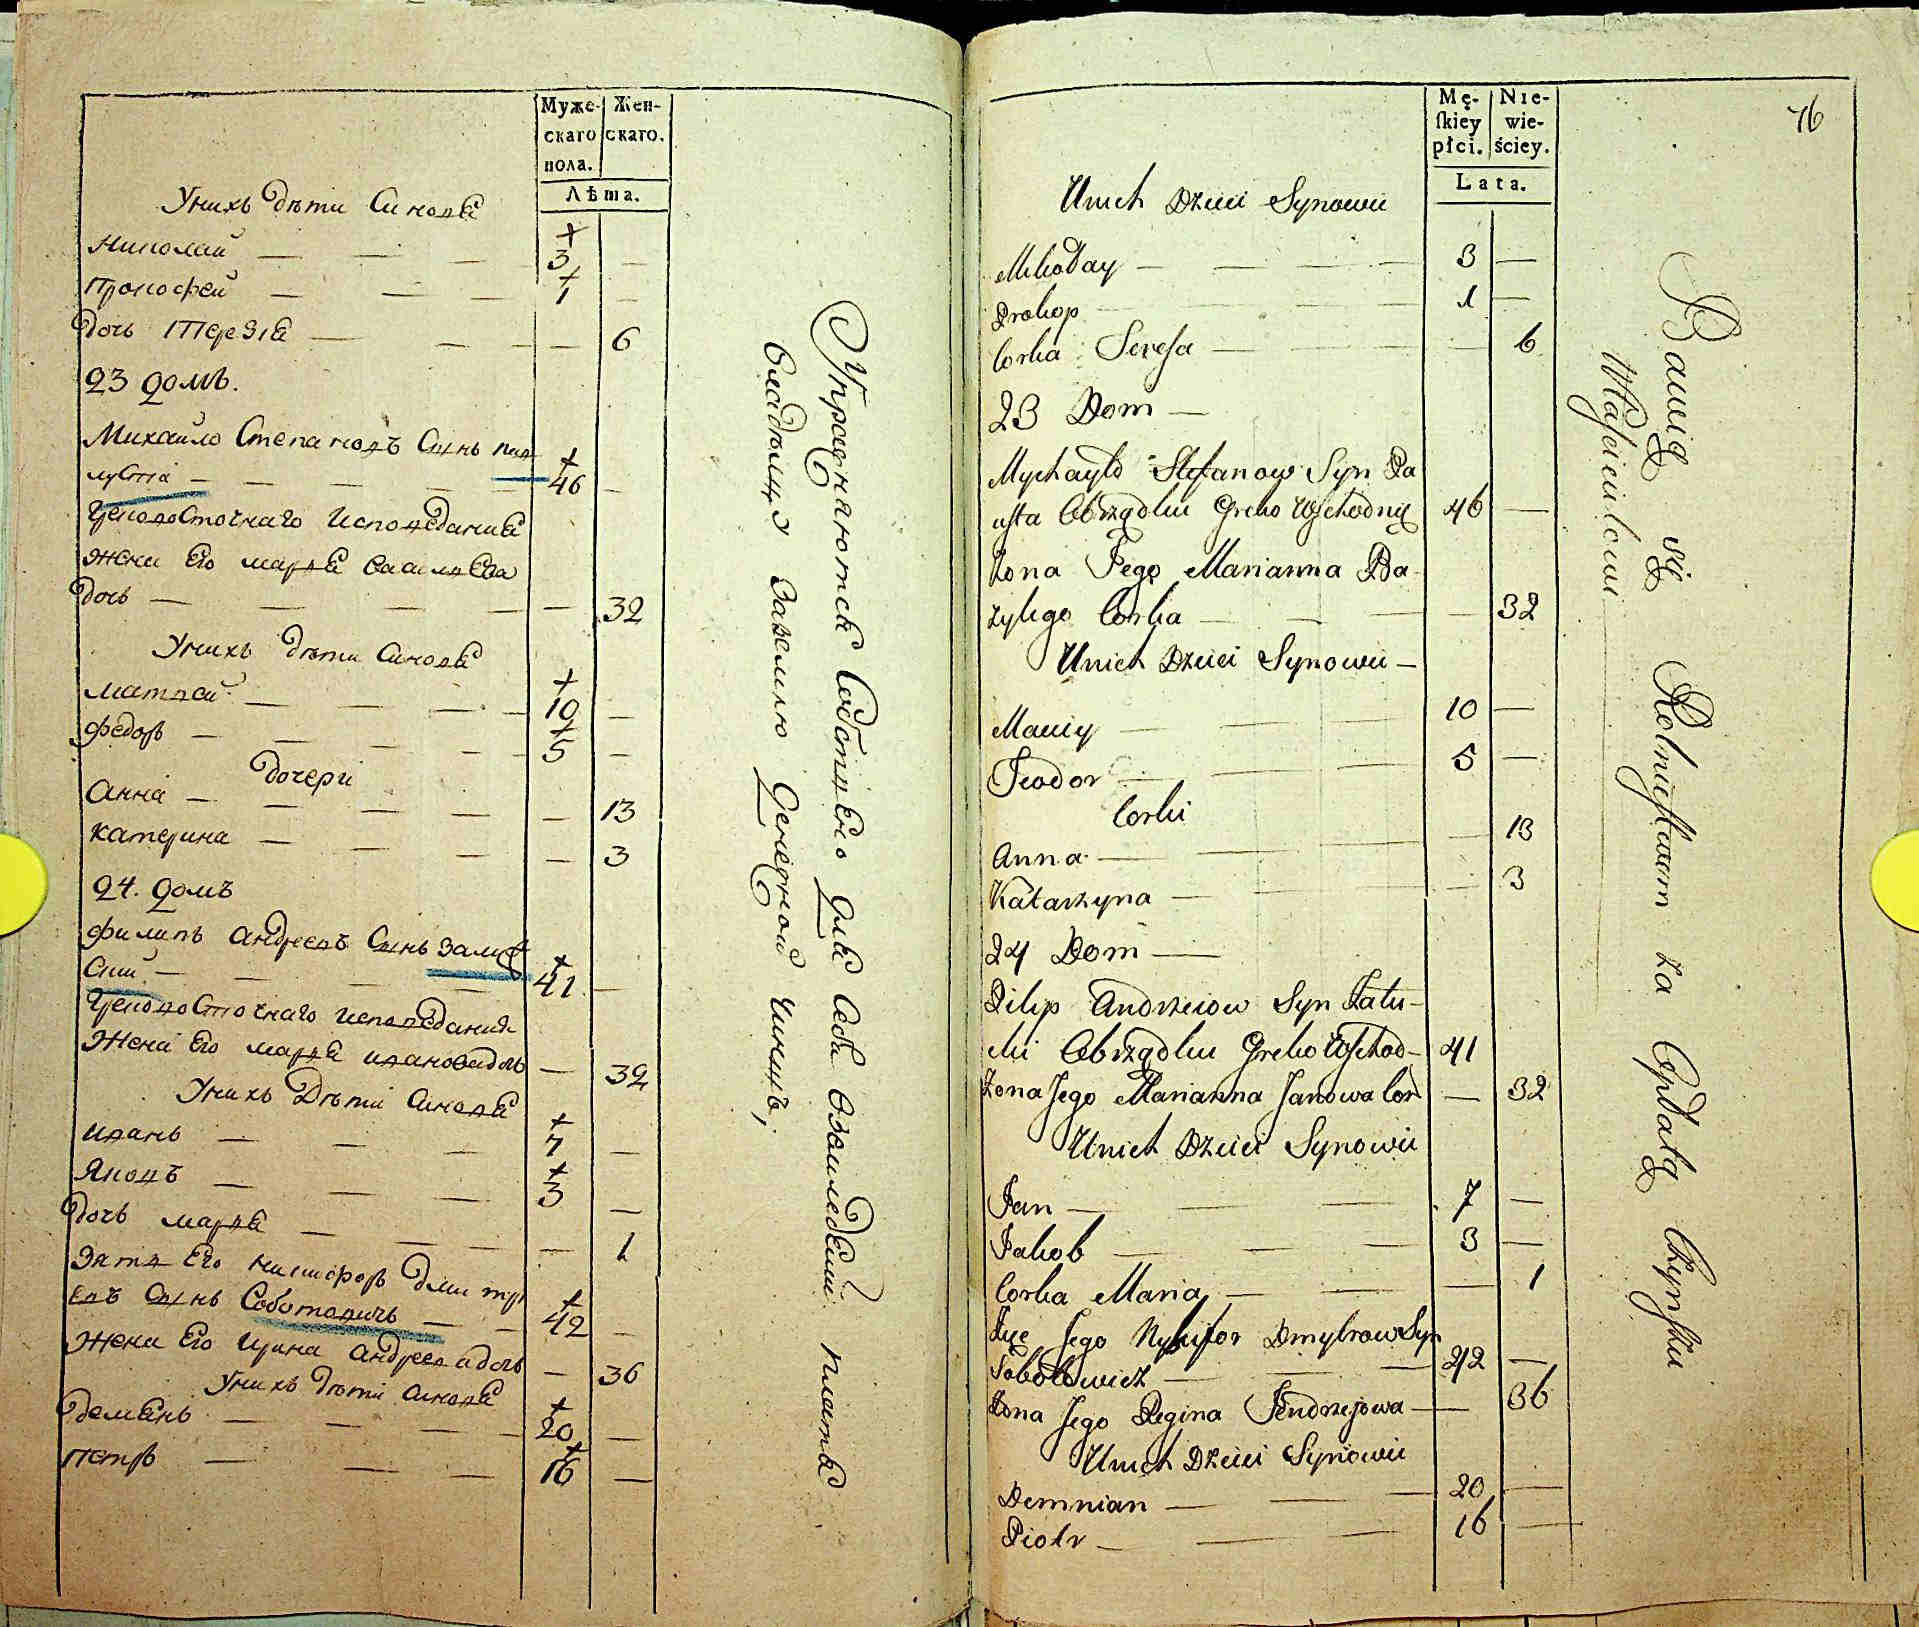 Муже-
скаго
пола.
Жен-
скаго.
Лѣта.
Унихъ дѣти Синовя
Николай — 3 —
Прокофей — 1 —
дочь Терезія — — 6
23 домъ.
Михайло Степановъ Сынъ пап
луста — 46 —
Грековосточнаго исповедания
жена Его маря васильева
дочь — — 32
Унихъ дѣти Синовя
матвей — 10 —
Федоръ — 5 —
дочери
Анна — — 13
катерина — — 3
24. домъ
Филипъ андреевъ Сынъ залу
ский — 41 —
Грековосточнаго исповедания
Жена Его маря иванова дочь — 32
Унихъ Дѣти Синовя
иванъ — 7 —
Яковъ — 3 —
дочь маря — — 1
Зять Его никифоръ дмитри
евъ Сынъ Соботовичъ — 42 —
Жена Его ирина андреева дочь — 36
Унихъ дѣти Синовя
демянъ — 20 —
петръ — 16 —
Упражняются Собственно для себя вземледелии платя
владѣлцу заземлю Денежной чиншъ,
Mę-
skiey
płci.
Nie-
wie-
ściey.
Lata.
76
Unich Dzieci Synowie
Mikołay — 3 —
Prokop — 1 —
Corka Teresa — — 6
23 Dom —
Mychayło Stefanow Syn Pa
usta Obrządku Greko Wschodnię 46 —
Zona Jego Marianna Ba
zylego Corka — — 32
Unich Dzieci Synowie —
Maciy — 10 —
Teodor — 5 —
Corki
Anna — — 13
Katarzyna — — 3
24 Dom —
Pilip Andrzeiow Syn Zału-
ski Obrządku Greko Wschod- 41
Zona Jego Marianna Janowa Cor — 32
Unich Dzieci Synowie
Jan — 7 —
Jakob — 3 —
Corka Maria — — 1
Zię Jego Nykifor Dmytrow Syn
Sobotowicz — 42 —
Zona Jego Regina Jendrzejowa — 36
Unich Dzieci Synowie
Demnian — 20 —
Piotr — 16 —
Bawią się Rolnictwem za Opłatą Czynszu
Właścicielowi